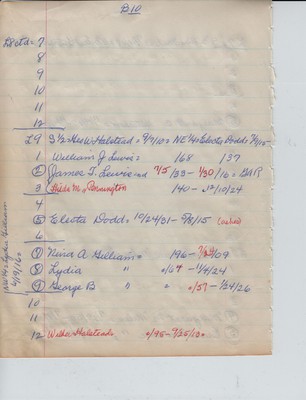 D10
7
8
9
10
11
12
L9 S 1/2 Geo W Halstead - 9/7/10 NE 1/4 Electa Dodd 9/8/15
1 William J Lewis 168 137
2 James T. Lewis 7/5/33 - 1/30/16 = GAR
3 Hilda M. Pennington 140 - 12/10/24
4
5 Electa Dodd 10/24/31 - 9/8/15 (ashes)
6
7 Nina A Gilliam 196 - 7/ /09
8 Lydia " 2/64 - 11/4/24
9 George B " /57 - 1/24/26
10
11
12 Halstead 2/95 - 9/25/10
NW 1/4 Lydia Gilliam
4/9/16